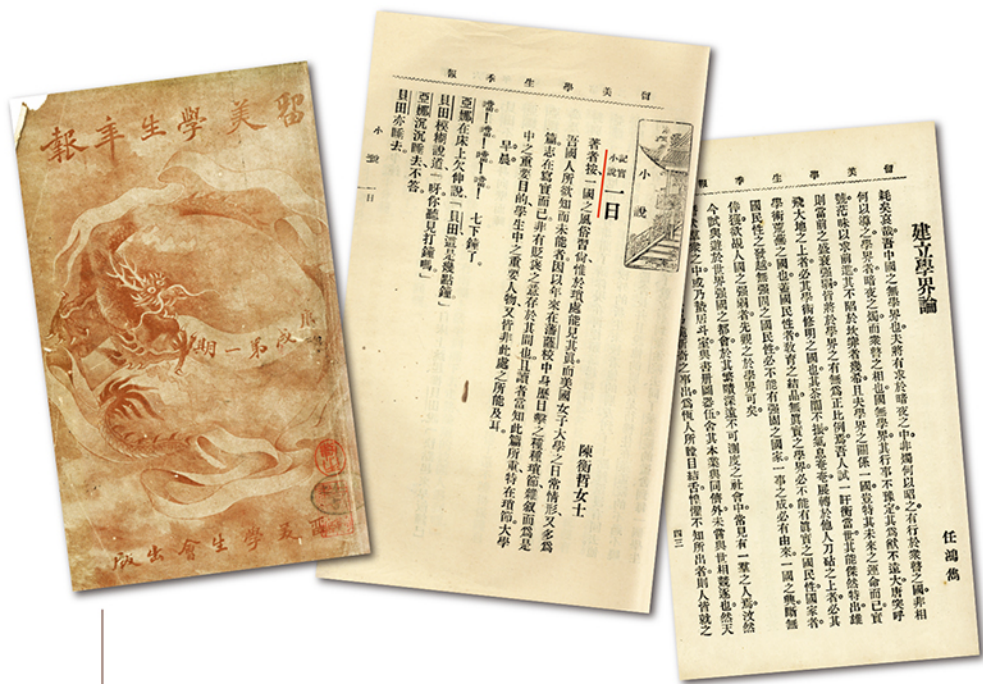 留美學生年報
庚戌第一期
美學生會出版
留美學生季報
小說
記實小說 一日
陳衡哲女士
著者按一國之風俗習尚惟於瑣處能見其眞而美國女子大學之日常情形又多爲
吾國人所欲知而未能者因以年來在藩薩校中身歷目擊之種種瑣節雜叙而爲是
篇志在寫實而已非有貶褒之意存於其間也且讀者當知此篇所重特在瑣節大學
中之重要目的學生中之重要人物又皆非此處之所能及耳
早晨
噹!噹!噹!噹! 七下鐘了。
亞娜在床上欠伸說「貝田這是幾點鐘」
貝田模糊說道「呀你聽見打鐘嗎」
亞娜沉沉睡去不答。
貝田亦睡去。
小說 一日
留美學生季報
建立學界論
任鴻雋
耗矣哀哉吾中國之無學界也夫將有求於暗夜之中非燭何以昭之有行於衆瞽之國非相
何以導之學界者暗夜之燭而衆瞽之相也國無學界其行事不豫定其爲猷不遠大唐突呼
號茫昧以求前進其不陷於坎窞者幾希且夫學界之關係一國豈特其未來之運命而已實
則當前之盛衰強弱皆將於學界之有無爲正比例焉吾人試一盱衡當世其能傑然特出雄
飛大地之上者必其學術修明之國也其茶闇不振氣息奄奄展轉於他人刀砧之上者必其
學術荒蕪之國也蓋國民性者敎育之結晶無眞實之學界必不能有眞實之國民性國家者
國民性之發越無强固之國民性必不能有强固之國家一事之成必有由來一國之興斷無
倖獲欲覘人國之强弱者先觀之於學界可矣
今試與遊於世界强國之都會於其繁賾深遠不可測度之社會中常見有一羣之人焉汶然
之中或乃蟄居斗室與書册圖器伍舍其本業與同儕外未嘗與世相競逐也然天
之事出爲恆人所瞠目結舌惶惶不知所出者則人皆就之
四三